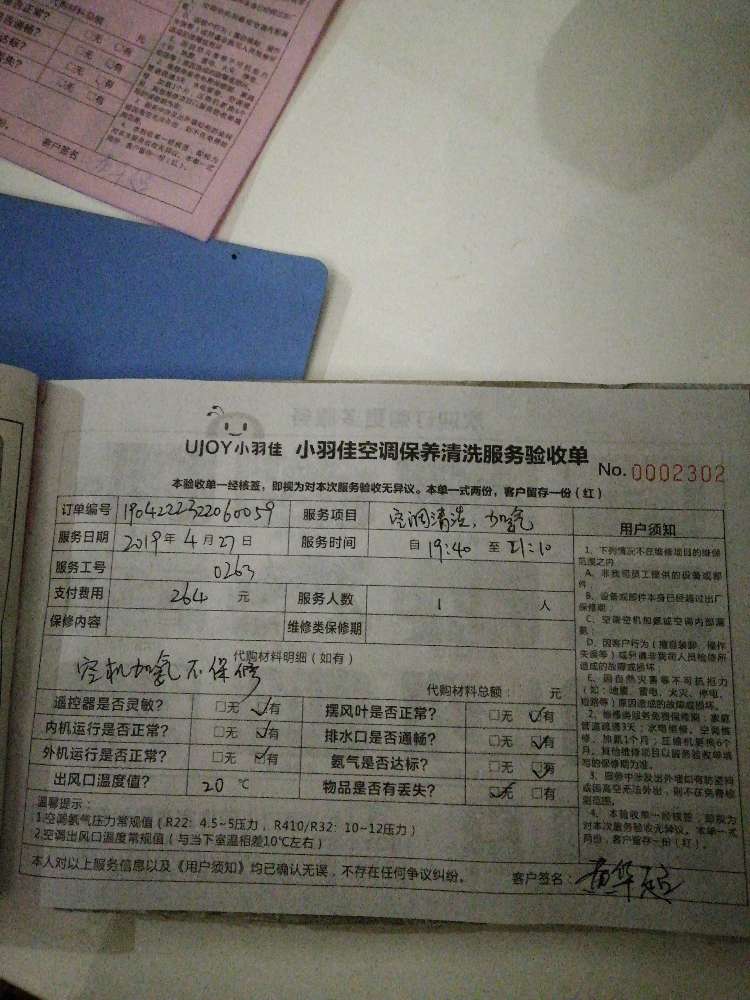 是否正常?
□无 □有
客户签名
UJOY小羽佳 小羽佳空调保养清洗服务验收单 No.0002302
本验收单一经核签，即视为对本次服务验收无异议。本单一式两份，客户留存一份（红）
订单编号 1904222322060059 服务项目 空调清洗，加氨 用户须知
服务日期 2019年4月27日 服务时间 自19:40至21:10
服务工号 0263
支付费用 264 元 服务人数 1 人
保修内容 维修类保修期
代购材料明细（如有）
空机加氨不保修
代购材料总额： 元
遥控器是否灵敏? □无 ☑有 摆风叶是否正常? □无 ☑有
内机运行是否正常? □无 ☑有 排水口是否通畅? □无 ☑有
外机运行是否正常? □无 ☑有 氨气是否达标? □无 ☑有
出风口温度值? 20 ℃ 物品是否有丢失? ☑无 □有
温馨提示：
1.空调氨气压力常规值（R22：4.5~5压力，R410/R32：10~12压力）
2.空调出风口温度常规值（与当下室温相差10℃左右）
本人对以上服务信息以及《用户须知》均已确认无误，不存在任何争议纠纷。 客户签名：
1、下列情况不在维修项目的维保
范围之内
A、非我司员工提供的设备或部
件
B、设备或部件本身已经超过出厂
保修期
C、空调空机加氨或空调内部漏
氨
D、因客户行为（擅自装卸、操作
失误等）或另请非我司人员检修所
造成的故障或损坏
E、因自然灾害等不可抗拒力
（如：地震、雷电、火灾、停电、
短路等）原因造成的故障或损坏。
2、维修类服务免费保修期：家庭
管道疏通3天；水电维修、空调维
修、加氨1个月；压缩机更换6个
月。其他维修项目以服务验收单填
写的保修期为准。
3、服务中涉及出外墙如有防盗网
或因高空无法外出，则不在免费检
测范围。
4、本验收单一经核签，即视为
对本次服务验收无异议。本单一式
两份，客户留存一份（红）。